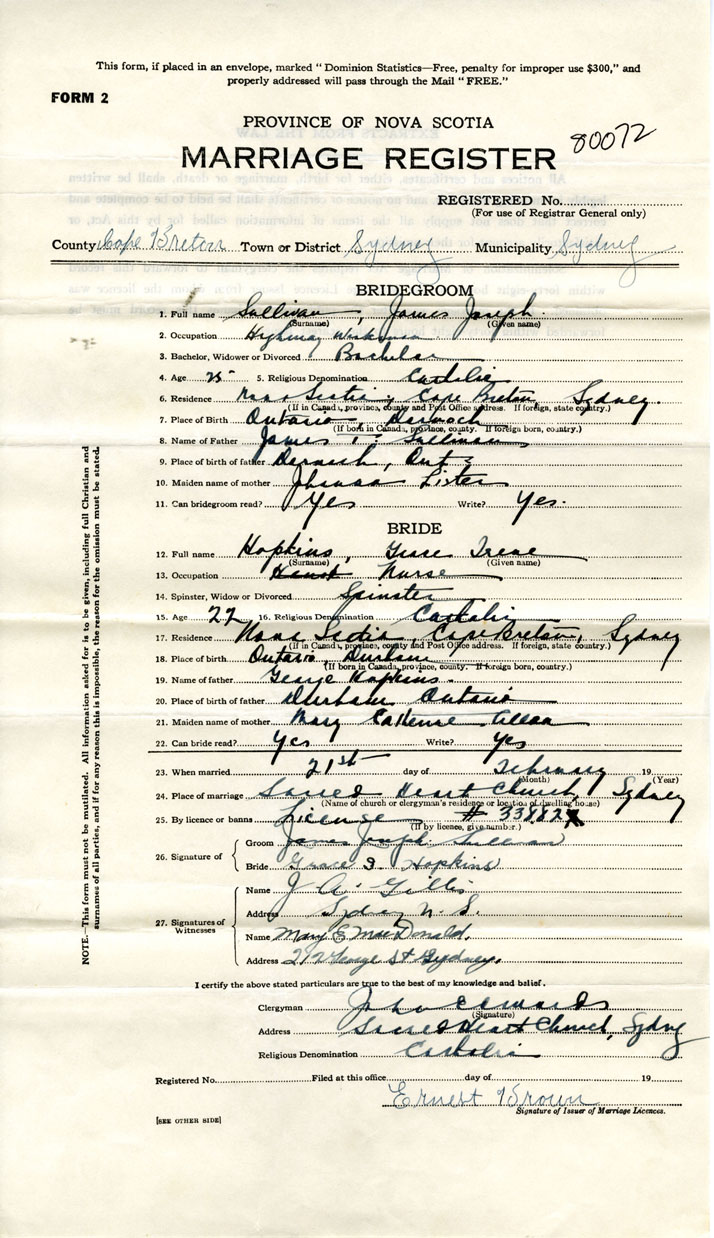 This form, if placed in an envelope, marked “Dominion Statistics—Free, penalty for improper use $300,” and
properly addressed will pass through the Mail “FREE.”
FORM 2
PROVINCE OF NOVA SCOTIA
80072
MARRIAGE REGISTER
REGISTERED No.
(For use of Registrar General only)
County Cape Breton Town or District Sydney Municipality Sydney
BRIDEGROOM
1. Full name Sullivan, James Joseph
(Surname) (Given name)
2. Occupation Highway Workman
3. Bachelor, Widower or Divorced Bachelor
4. Age 25 5. Religious Denomination Catholic
6. Residence Nova Scotia, Cape Breton, Sydney.
(If in Canada, province, county and Post Office address. If foreign, state country.)
7. Place of Birth Ontario Dornoch
(If born in Canada, province, county. If foreign born, country.)
8. Name of Father James T. Sullivan
9. Place of birth of father Dornoch, Ont
10. Maiden name of mother Lister
11. Can bridegroom read? Yes Write? Yes.
BRIDE
12. Full name Hopkins, Grace Irene
(Surname) (Given name)
13. Occupation Nurse
14. Spinster, Widow or Divorced Spinster
15. Age 22 16. Religious Denomination Catholic
17. Residence Nova Scotia, Cape Breton, Sydney
(If in Canada, province, county and Post Office address. If foreign, state country.)
18. Place of birth Ontario Durham
(If born in Canada, province, county. If foreign born, country.)
19. Name of father George Hopkins.
20. Place of birth of father Durham Ontario
21. Maiden name of mother Mary
22. Can bride read? Yes Write? Yes
23. When married 21st day of February 19
(Month) (Year)
24. Place of marriage Sacred Heart Church, Sydney
(Name of church or clergyman's residence or location of dwelling house)
25. By licence or banns License #
(If by licence, give number.)
26. Signature of
Groom James Joseph Sullivan
Bride Grace I. Hopkins
27. Signatures of Witnesses
Name J A. Gillis
Address Sydney N.S.
Name Mary E MacDonald.
Address 212 George St Sydney.
I certify the above stated particulars are true to the best of my knowledge and belief.
Clergyman John
(Signature)
Address Sacred Heart Church, Sydney
Religious Denomination Catholic
Registered No. Filed at this office day of 19
Ernest Brown
Signature of Issuer of Marriage Licences.
[SEE OTHER SIDE]
NOTE.—This form must not be mutilated. All information asked for is to be given, including full Christian and
surnames of all parties, and if for any reason this is impossible, the reason for the omission must be stated.